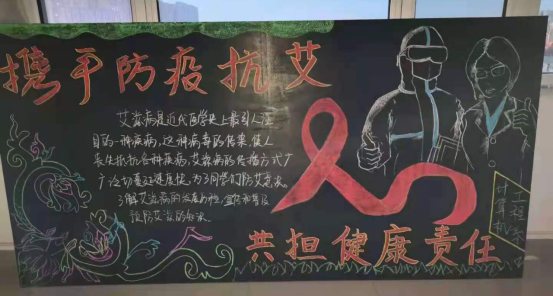 携手防疫抗艾
艾滋病是近代医学史上最引人注
目的一种疾病,这种病毒的传染,使人
丧失抵抗各种疾病,艾滋病的传播方式广
广泛切蔓延速度快,为了同学们防艾意识
了解艾滋病的发展历程,宣传和普及
预防艾滋的知识
共担健康责任
计算机
工程